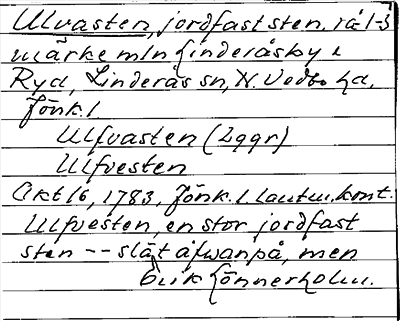 Ulvasten, jordfast sten, rå l-s
märke mln Linderåsby o
Ryd, Linderås sn, N. Vedbo hd,
Jönk. l.
Ulfvasten (2ggr)
Ulfvesten
Akt 16, 1783, Jönk. l. lantm. kont.
Ulfvesten, en stor jordfast
sten -- slät åfwanpå, men
Erik Lönnerholm.